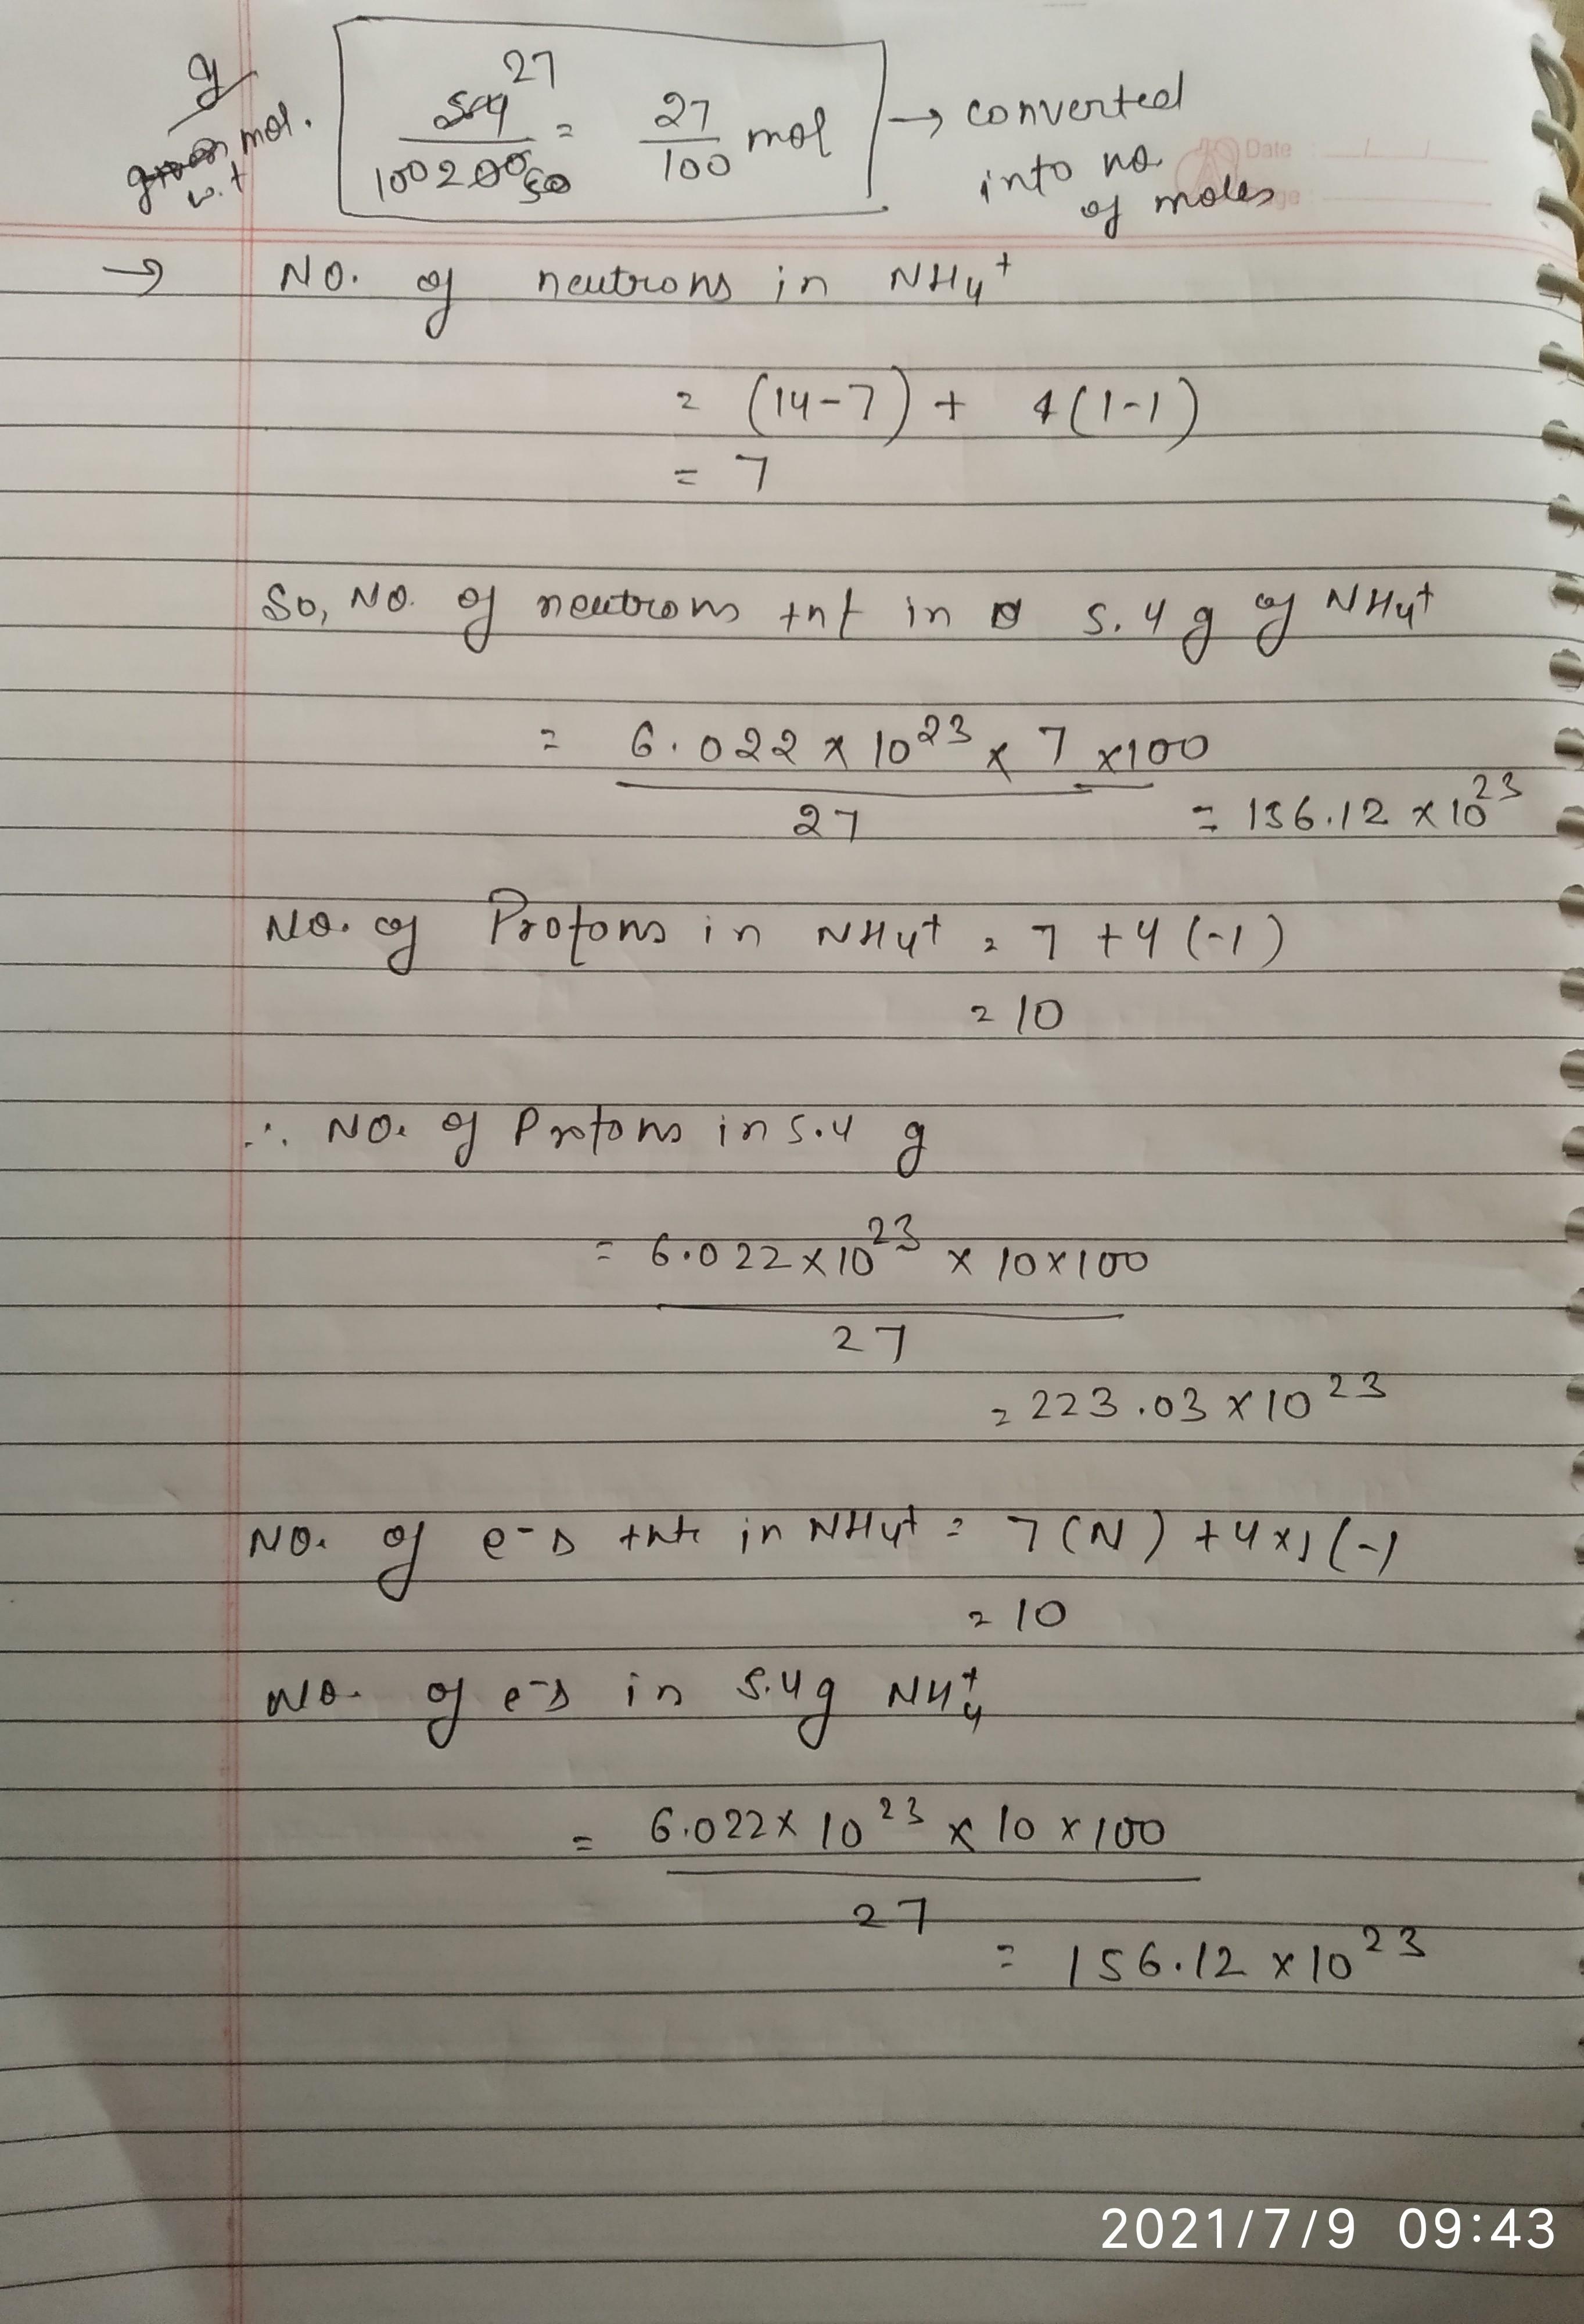 g
mol.
w.t
27
100 200 50 = 27/100 mol → converted
into no.
of moles
Date
→ No. of neutrons in NH4+
= (14-7) + 4(1-1)
= 7
So, No. of neutrons +nt in 5.4 g of NH4+
= 6.022 x 10^23 x 7 x100
27
= 156.12 x 10^23
No. of Protons in NH4+ = 7 +4 (-1)
= 10
∴ No. of Protons in 5.4 g
= 6.022 x 10^23 x 10x100
27
= 223.03 x 10^23
No. of e-s +nt in NH4+ = 7 (N) + 4x1 (-1
= 10
No. of e-s in 5.4g NH4+
= 6.022 x 10^23 x 10 x 100
27
= 156.12 x 10^23
2021/7/9 09:43